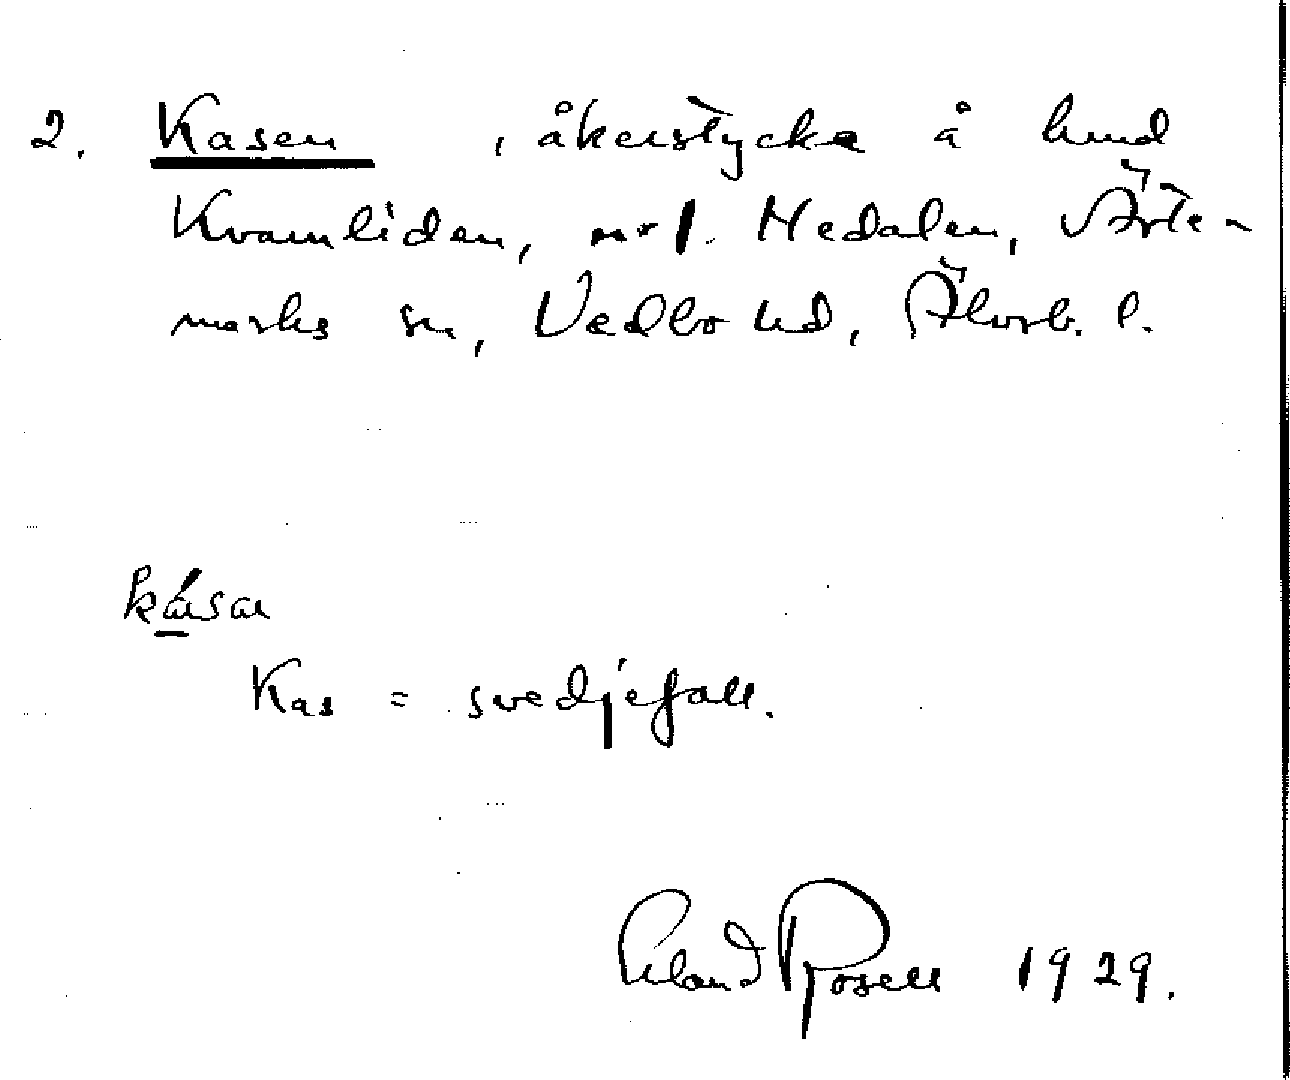 2. Kasen , åkerstycke å hmd
Kvarnliden, nr 1. Nedalen, Ärte-
marks sn, Vedbo hd, Älvsb. l.
kása
Kas = svedjefall.
Erland Rosell 1929.